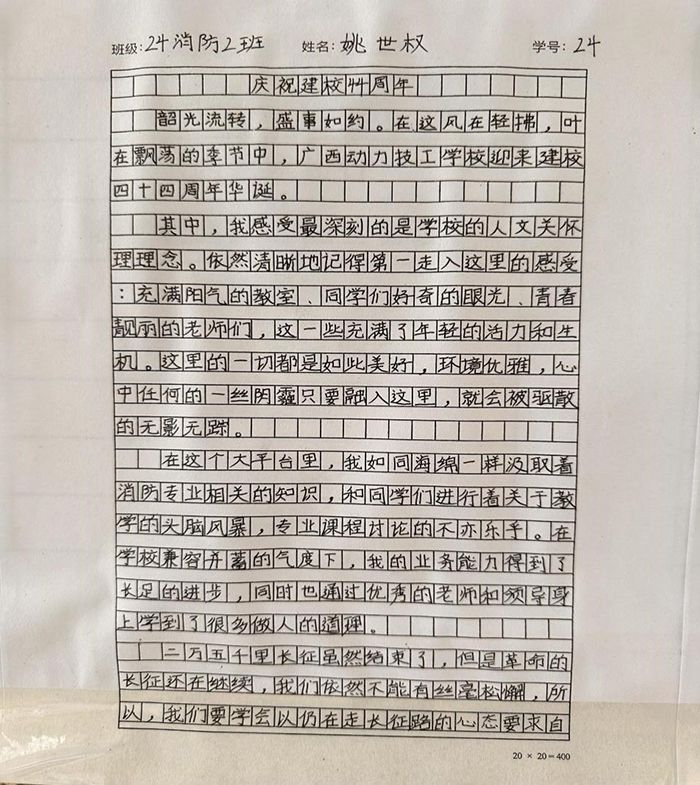 班级：24消防2班 姓名：姚世权 学号：24
庆祝建校44周年
韶光流转，盛事如约。在这风在轻拂，叶
在飘荡的季节中，广西动力技工学校迎来建校
四十四周年华诞。
其中，我感受最深刻的是学校的人文关怀
理理念。依然清晰地记得第一走入这里的感受
：充满阳气的教室、同学们好奇的眼光、青春
靓丽的老师们，这一些充满了年轻的活力和生
机。这里的一切都是如此美好，环境优雅，心
中任何的一丝阴霾只要融入这里，就会被驱散
的无影无踪。
在这个大平台里，我如同海绵一样汲取着
消防专业相关的知识，和同学们进行着关于教
学的头脑风暴，专业课程讨论的不亦乐乎。在
学校兼容并蓄的气度下，我的业务能力得到了
长足的进步，同时也通过优秀的老师和领导身
上学到了很多做人的道理。
二万五千里长征虽然结束了，但是革命的
长征还在继续，我们依然不能有丝毫松懈，所
以，我们要学会以仍在走长征路的心态要求自
20 × 20 = 400